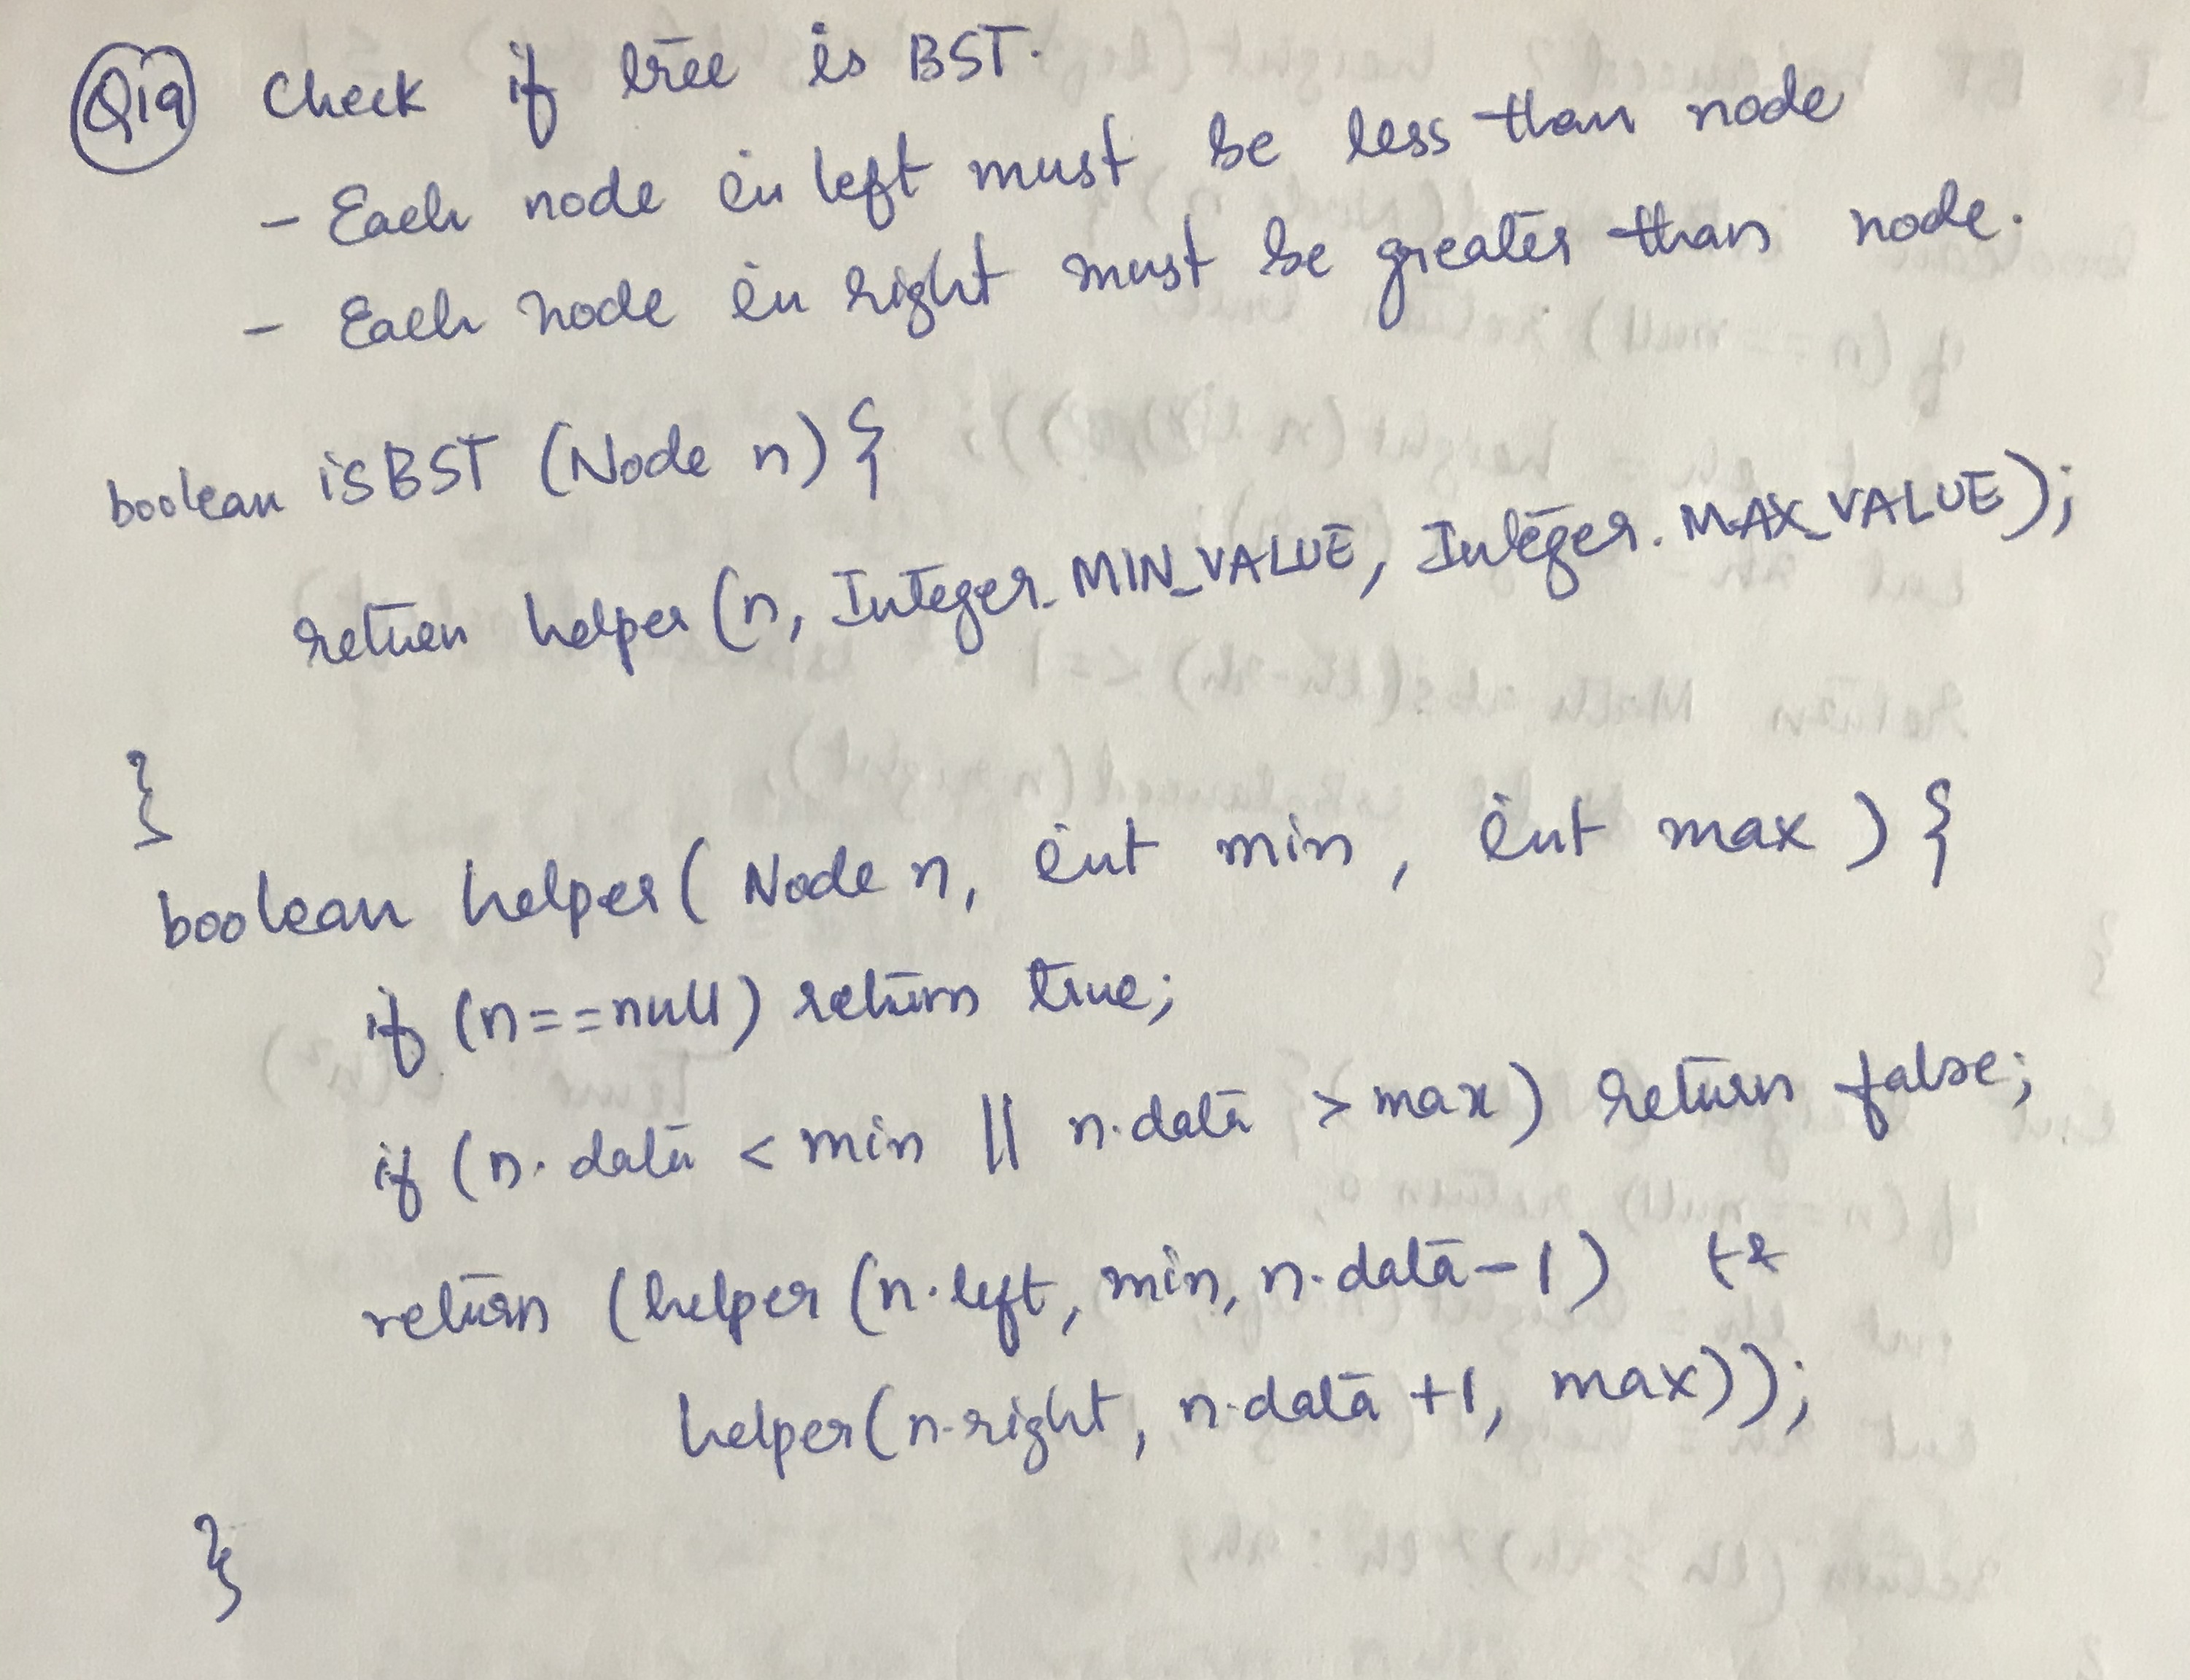 Q19 Check if tree is BST.
- Each node in left must be less than node
- Each node in right must be greater than node.
boolean isBST (Node n) {
return helper (n, Integer.MIN_VALUE, Integer.MAX_VALUE);
}
boolean helper ( Node n, int min, int max ) {
if (n==null) return true;
if (n.data < min || n.data > max) return false;
return (helper (n.left, min, n.data-1) &&
helper(n.right, n.data+1, max));
}